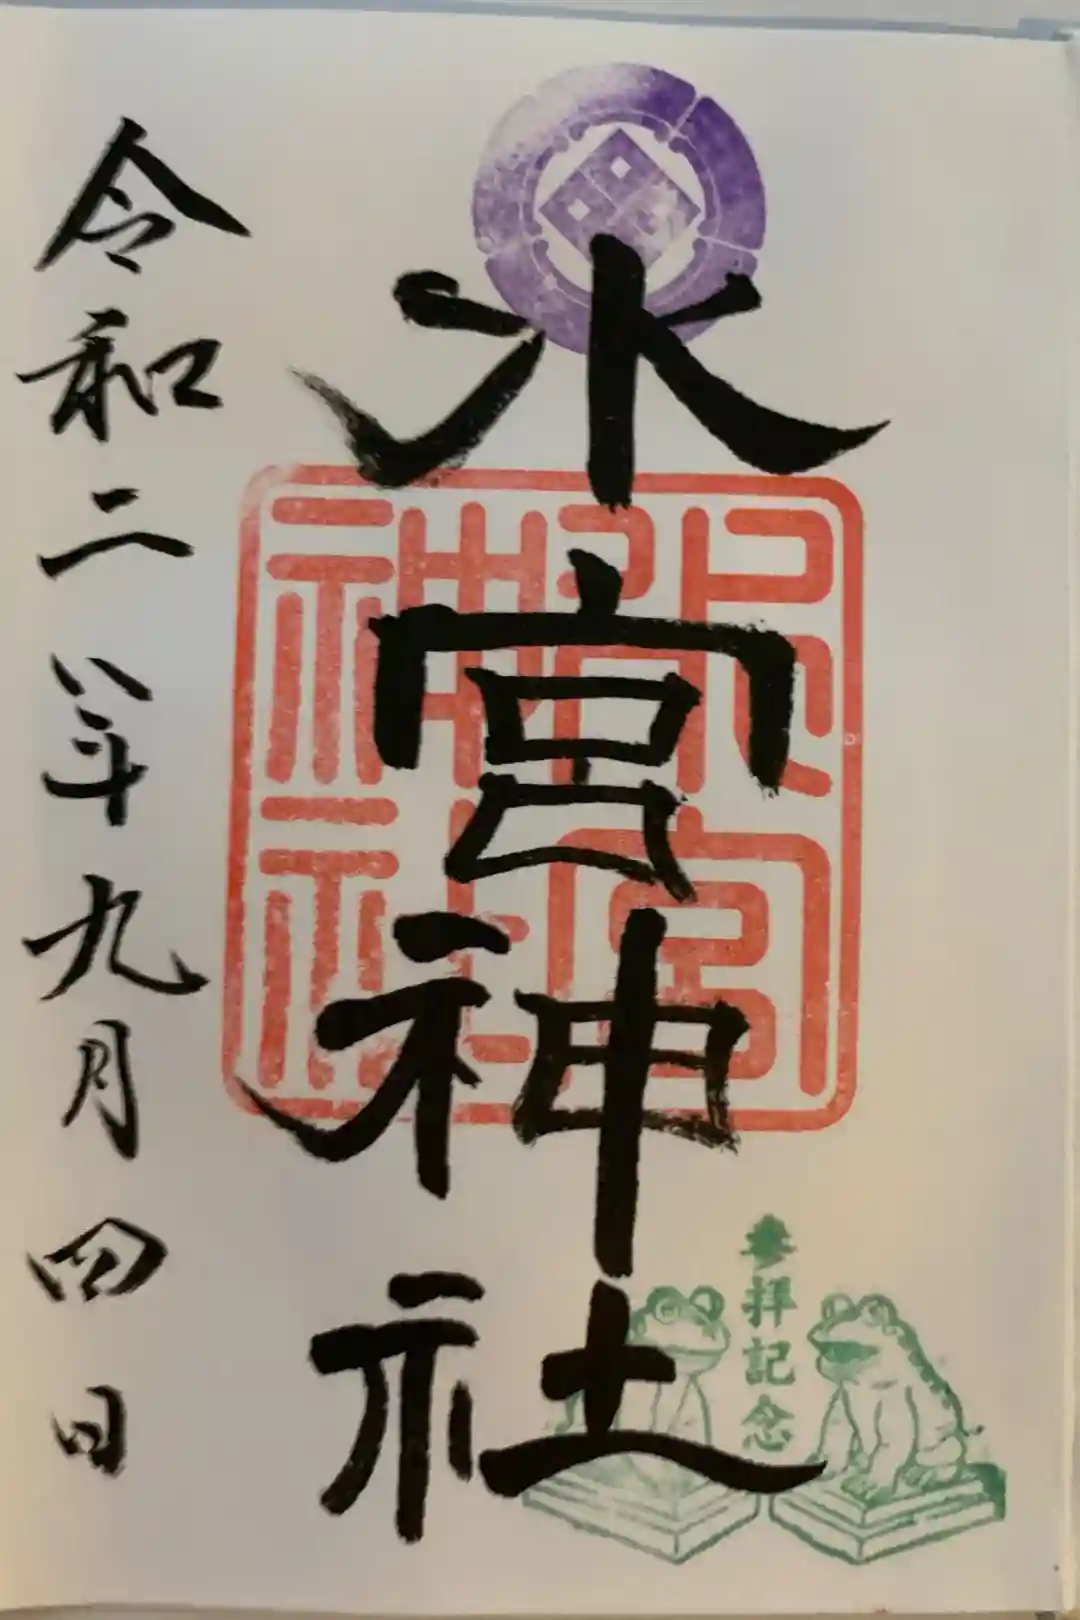 参拝記念
水宮神社
宮
神社
令和二年九月四日